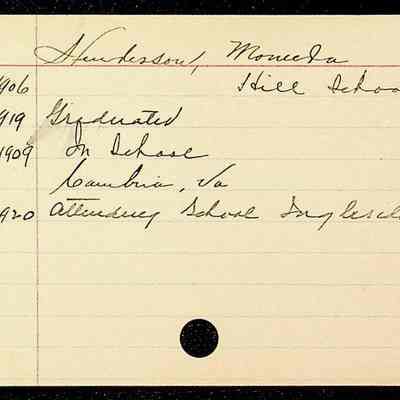 Henderson, Moneda
906 Hill School
919 Graduated
1909 In School
Cambria, Va
920 Attending School Ingleside